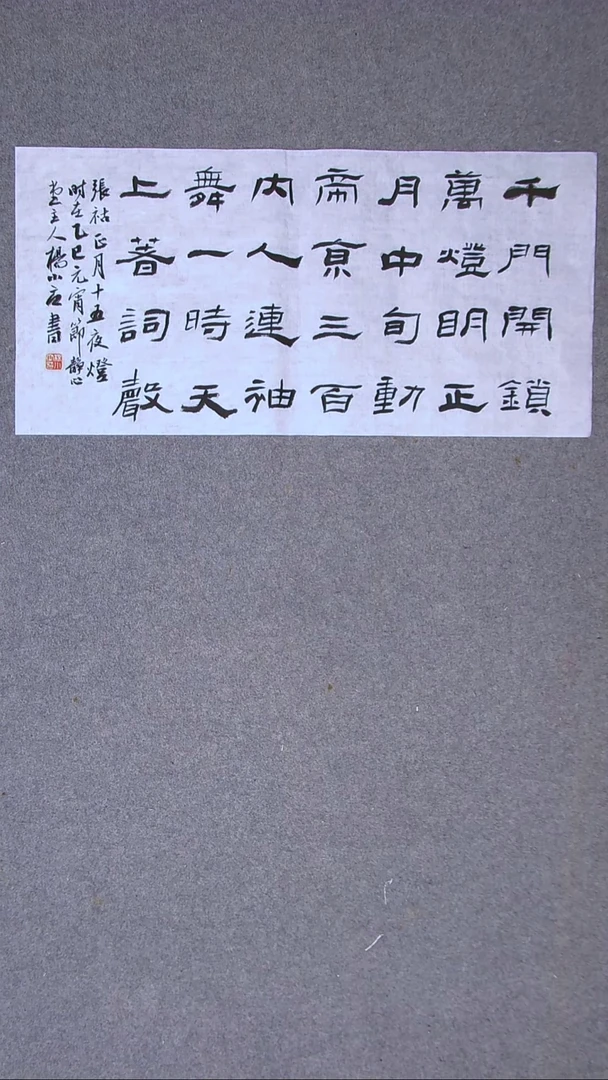 千門開鎖
萬燈明正
月中旬動
帝京三百
內人連袖
舞一時天
上著詞聲
張祜正月十五夜燈
時在乙巳元宵節靜心
堂主人楊小京書